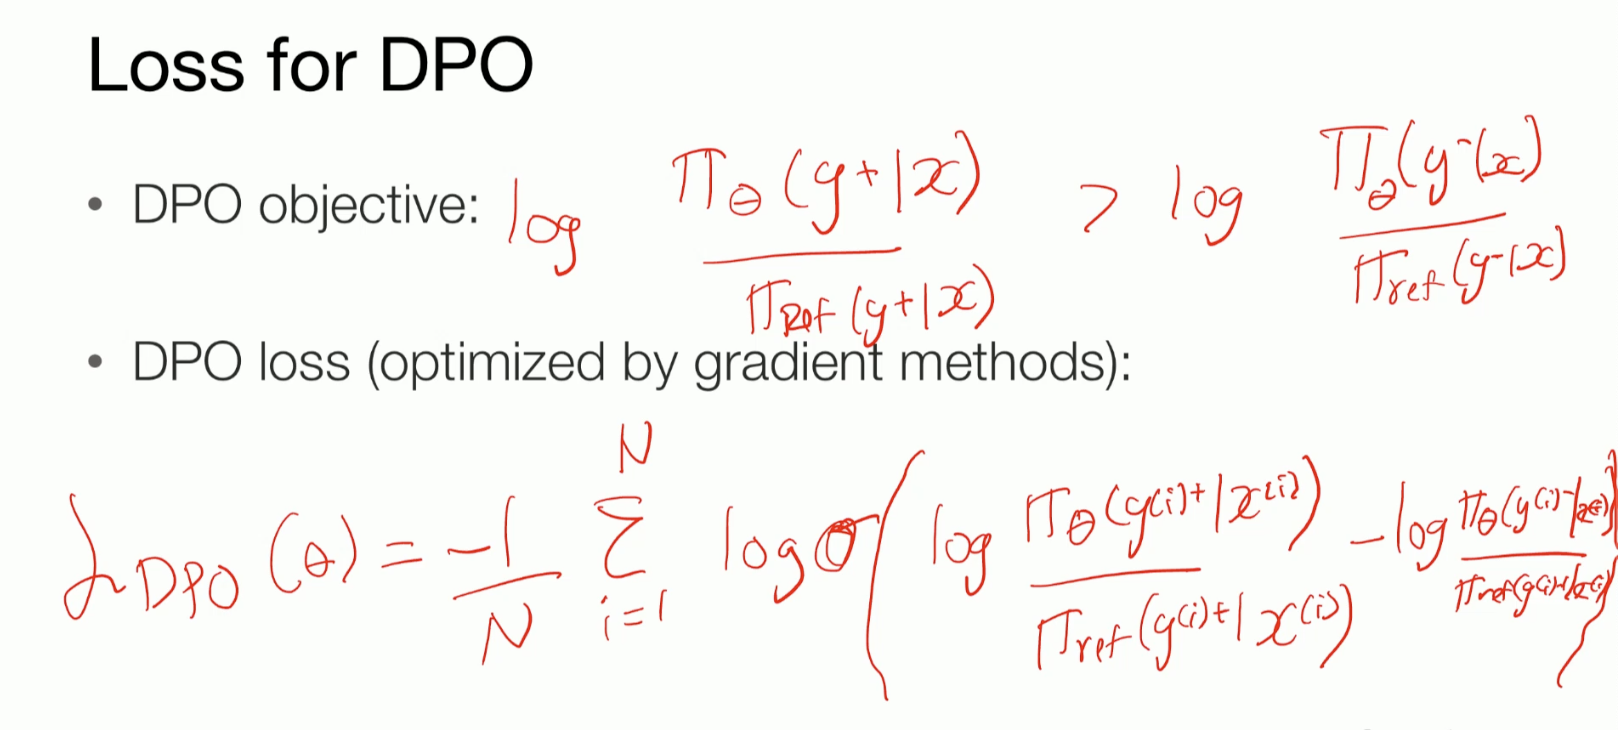 Loss for DPO
• DPO objective: log π_θ(y+|x) / π_Ref(y+|x) > log π_θ(y-|x) / π_ref(y-|x)
• DPO loss (optimized by gradient methods):
L_DPO(θ) = -1/N Σ_{i=1}^{N} log σ( log π_θ(y^{(i)+}|x^{(i)}) / π_ref(y^{(i)+}|x^{(i)}) - log π_θ(y^{(i)-}|x^{(i)}) / π_ref(y^{(i)+}|x^{(i)}) )